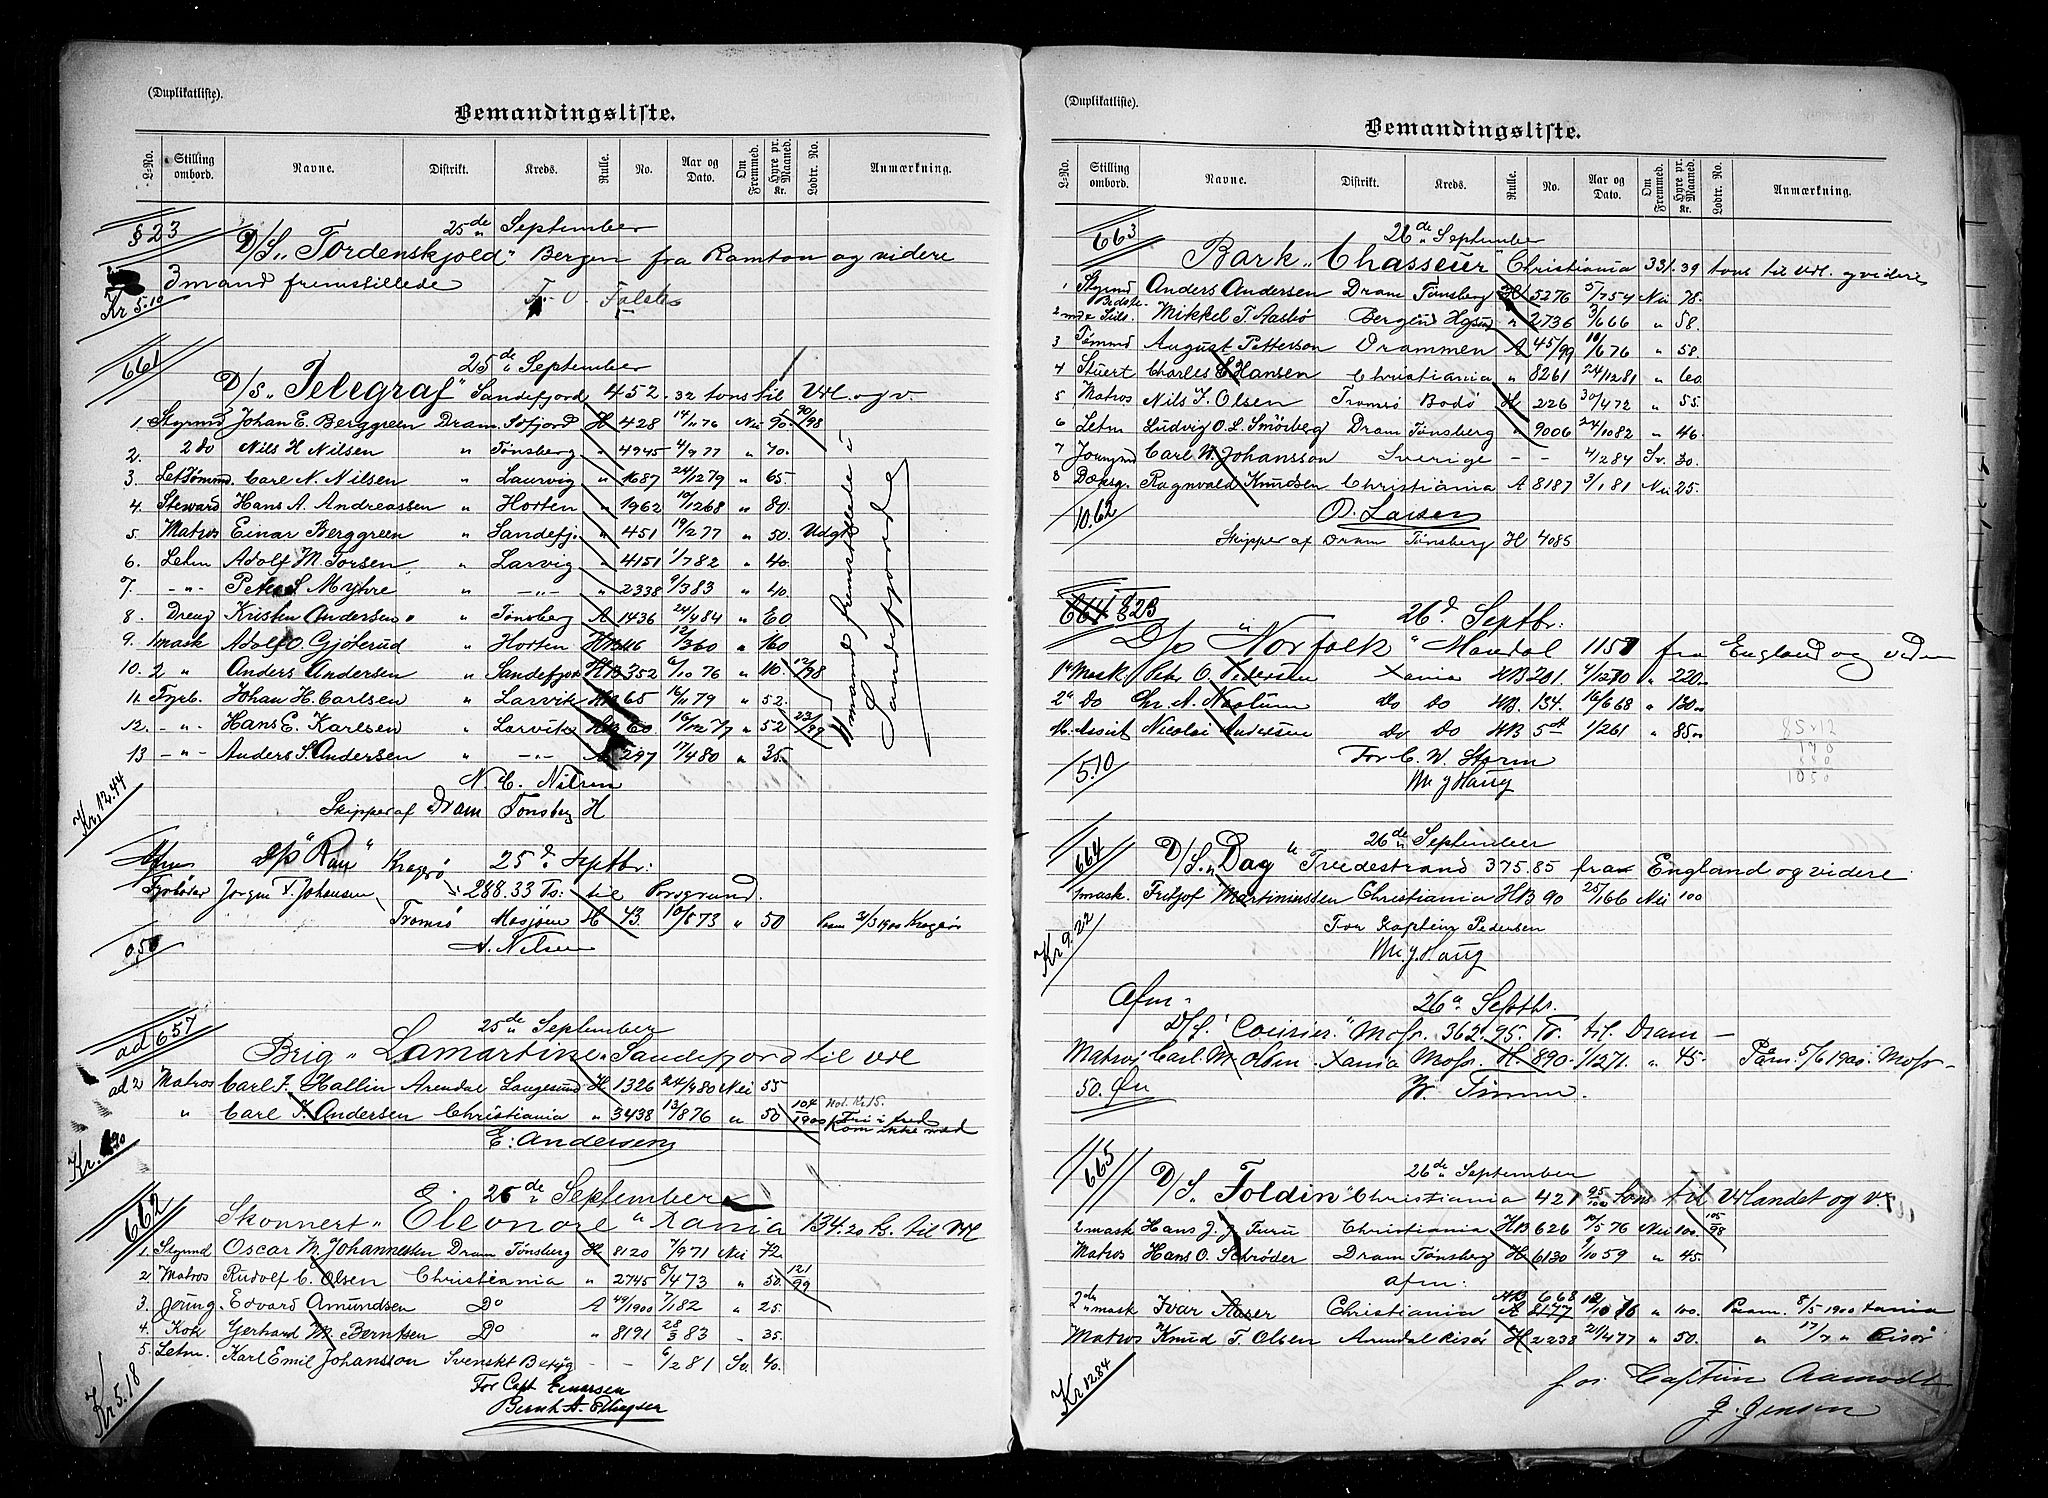 (Duplikatliste).
Bemandingsliste.
L-No. Stilling ombord. Navne. Distrikt. Kreds. Rulle. No. Aar og Dato. Om Fremmed. Hyre pr. Maaned. Kr. Lodtr. No. Anmærkning.
§23 25de September
D/S. "Tordenskjold" Bergen fra Ramton og videre
3 mand fremstillede
Kr 5.10
661 25de September
D/S. "Telegraf" Sandefjord 452.32 tons til Udl. og v.
1. Styrmd Johan E. Berggreen Dram. Sdfjord H 428 14/11 76 Nei 95. 90/98
2. 2 do Nils H Nilsen " Tønsberg " 4945 4/9 77 " 70.
3. Let&Tømmd Carl N. Nilsen " Laurvig " 1687 24/12 79 " 65.
4. Steward Hans A. Andreassen " Horten " 1962 10/12 68 " 80.
5. Matros Einar Berggreen " Sandefj. " 451 19/2 77 " 50. Udgt
6. Letm Adolf M Torsen " Larvig " 4151 1/7 82 " 40.
7. -"- Peter S. Myhre " -"- " 2338 9/3 83 " 40.
8. Dreng Kristen Andersen " Tønsberg A 1436 24/4 84 " 20
9. 1 mask Adolf O. Gjøterud " Horten HB 46 12/3 60 " 160
10. 2 " Anders Andersen " Sandefjor HB 352 6/10 76 " 110. 12/98
11. Fyrb. Johan H. Carlsen " Larvik HB 65 16/11 79 " 52.
12. -"- Hans E. Karlsen " Larvik HB 60 16/12 77 " 52 23/99
13 -"- Anders S. Andersen " -"- A 297 17/4 80 " 35.
mand fremstillede i Sandefjord
N. C. Nilsen
Kr. 12.44
Skipper af Dram Tønsberg H
Afm D/S "Ran" Kragerø 25d. Septbr:
Fyrbøder Jørgen T. Johansen 288.33 Ts: til Porsgrund.
Tromsø Mosjøen H 43 10/8 73 " 50 Paam 21/3 1900 Kragerø
0,50 A. Nilsen
ad 657 25de September
Brig "Lamartine" Sandefjord til Udl
ad 2 Matros Carl F. Hallin Arendal Langesund H 1326 24/4 80 Nei 55
" Carl I. Andersen Christiania " 3438 13/8 76 " 50 104/1900 Not. Kr 15.
Kom ikke med
E. Andersen
662 26de September
Skonnert "Eleonore" Xania 134.20 ts. til Udl
1. Styrmd Oscar M. Johannesen Dram Tønsberg H 8120 7/9 71 Nei 72
2. Matros Rudolf C. Olsen Christiania " 2745 8/4 73 " 50. 121/99
3. Joung. Edvard Amundsen Do A 49/1900 7/1 82 " 25.
4. Kok Gerhard M. Berntsen Do " 8191 28/3 83 " 35.
5. Letm. Karl Emil Johansson Svenskt Betyg - - 6/2 81 Sv. 40.
For Capt Einarsen
Kr 5.18
(Duplikatliste).
Bemandingsliste.
L-No. Stilling ombord. Navne. Distrikt. Kreds. Rulle. No. Aar og Dato. Om Fremmed. Hyre pr. Maaned. Kr. Lodtr. No. Anmærkning.
663 26de September
Bark "Chasseur" Christiania 331.39 tons til Udl. og videre
1 Styrmd Anders Andersen Dram Tønsberg H 5276 5/7 54 Nei 78.
2 Mikkel T. Aasbø Bergen " 2736 3/6 66 " 58.
3 Tømmd August Petterson Drammen A 45/99 10/6 76 " 58.
4 Stuert Charles E. Hansen Christiania " 8261 24/12 81 " 60.
5 Matros Nils J. Olsen Tromsø Bodø H 226 30/4 72 " 55.
6 Letm Ludvig O. L. Smörberg Dram Tønsberg " 9006 24/10 82 " 46.
7 Joungmd Carl W. Johansson Sverige - - 4/2 84 Sv. 30.
8 Dæksg. Ragnvald Knudsen Christiania A 8187 3/1 81 Nei 25.
10.62 O. Larsen
Skipper af Dram Tønsberg H 4085
664 §23 26d. Septbr:
D/S "Norfolk" Mandal 1157 fra England og viden
1st Mask. Petr O. Pedersen Xania HB 201 4/12 70 " 220.
2d Do Chr. A. Naslum do do HB. 134. 16/6 68 " 130.
M. Assist Nicolai Andersen do do HB 5 1/2 61 " 85.
5.10 For C. W. Storm
M. J. Haug
85 12
170
1050
664 26de September
D/S. "Dag" Tvedestrand 375.85 fra England og videre
1 mask. Fritjof Martiniussen Christiania HB 90 25/1 66 Nei 100
Kr 9.22 For Kaptein Pedersen
M. J. Haug
Afm- 26d Septbr.
D/S. "Courier." Moss. 362.95. Ts. til. Dram -
Matros Carl. M. Olsen. Xania Moss. H. 890. 1/12 71. " 45. Paam. 5/6 1900. Moss-
50. Øre
665 26de September
D/S. "Foldin" Christiania 421 95/100 tons til Udlandet og v.
2 mask Hans J. J. Furu Christiania HB 626 10/5 76 Nei 100. 105/98
Matros Hans O. Schrøder Dram Tønsberg H 6130 9/10 59 " 45.
afm:
2de mask Ivar Aaser Christiania HB 668 A 2177 12/10 76 " 100. Paam. 8/5 1900 Xania
Matros Knud T. Olsen Arendal Risør H 2238 21/4 77 " 50. " 17/7 " Risør
Kr 12.84 for Captein Aamodt
J. Jensen